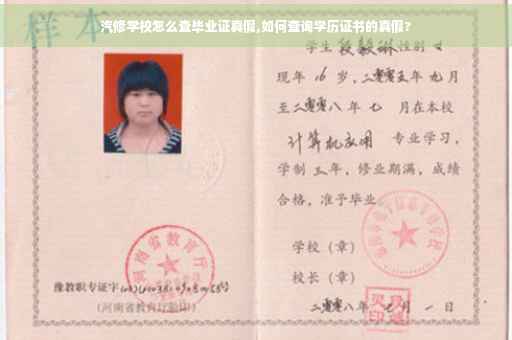 样本
汽修学校怎么查毕业证真假,如何查询学历证书的真假?
学生 段毅琳 性别 女
现年 16 岁,二零零五年 九月
至二零零八年 七 月在本校
计算机应用 专业学习,
学制 三年,修业期满,成绩
合格,准予毕业
学校(章)
校长(章)
二零零八年 七 月 一 日
河南省教育厅
豫教职专证字
(河南省教育厅验印)